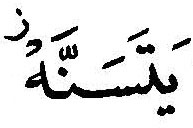 يَتَسَنَّهْ ز